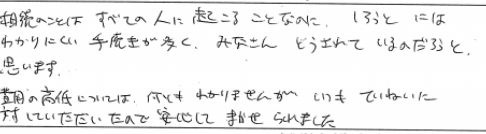 相続のことは すべての 人に 起こる ことなのに、しろうと には
わかりにくい 手続きが多く、みなさん どうされて いるのだろうと、
思います。
費用の高低については、何とも わかりませんが いつも ていねいに
対していただいたので 安心して まかせ られました